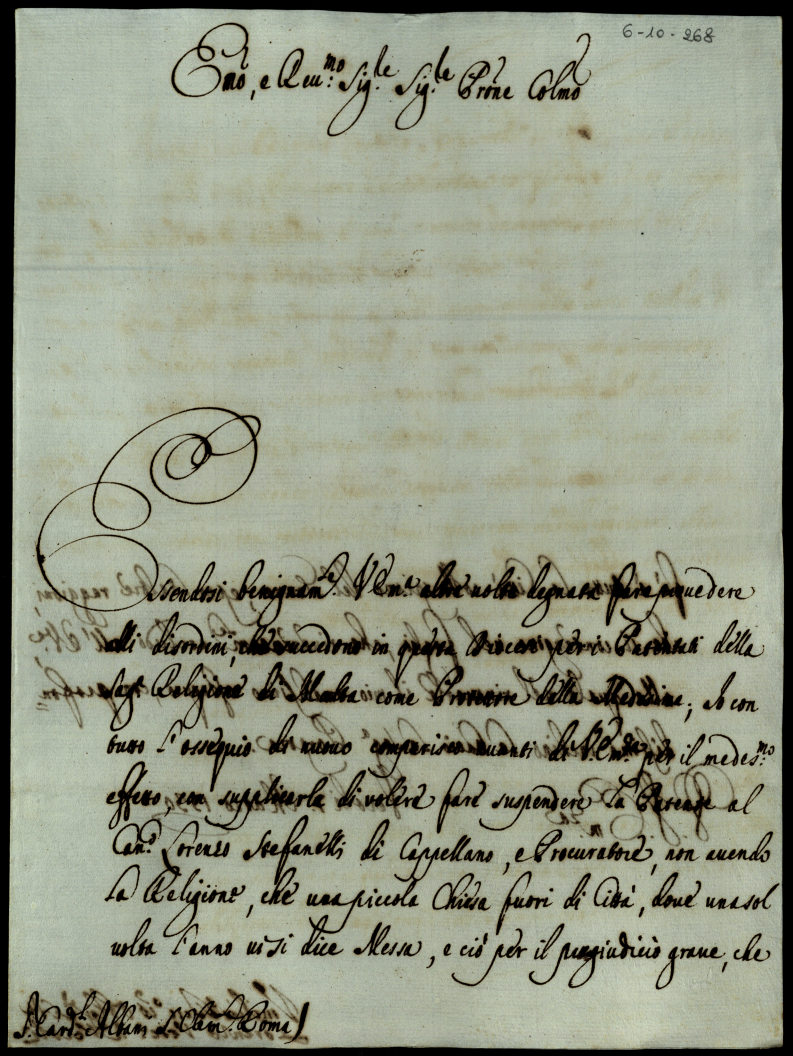 6-10-268
Emo, e Reu.mo Sig.le Sig.le Prone Colmo
Essendosi benignam.e V. Em.a altre uolte degnata fare prouedere
alli disordini, che succedono in questa Diocesi per i Patentati della
Sag.a Religione di Malta come Protettore della Medesima; Io con
tutto l'ossequio di nuouo comparisco auanti di V. Em.za per il medes.mo
effetto, con supplicarla di volere fare suspendere la Patente al
Can.co Lorenzo Stefanelli di Cappellano, e Procuratore, non auendo
la Religione, che una piccola Chiesa fuori di Città, doue una sol
uolta l'anno ui si dice Messa, e ciò per il pregiudicio graue, che
S.r Card.l Albani S. Clem.e Roma